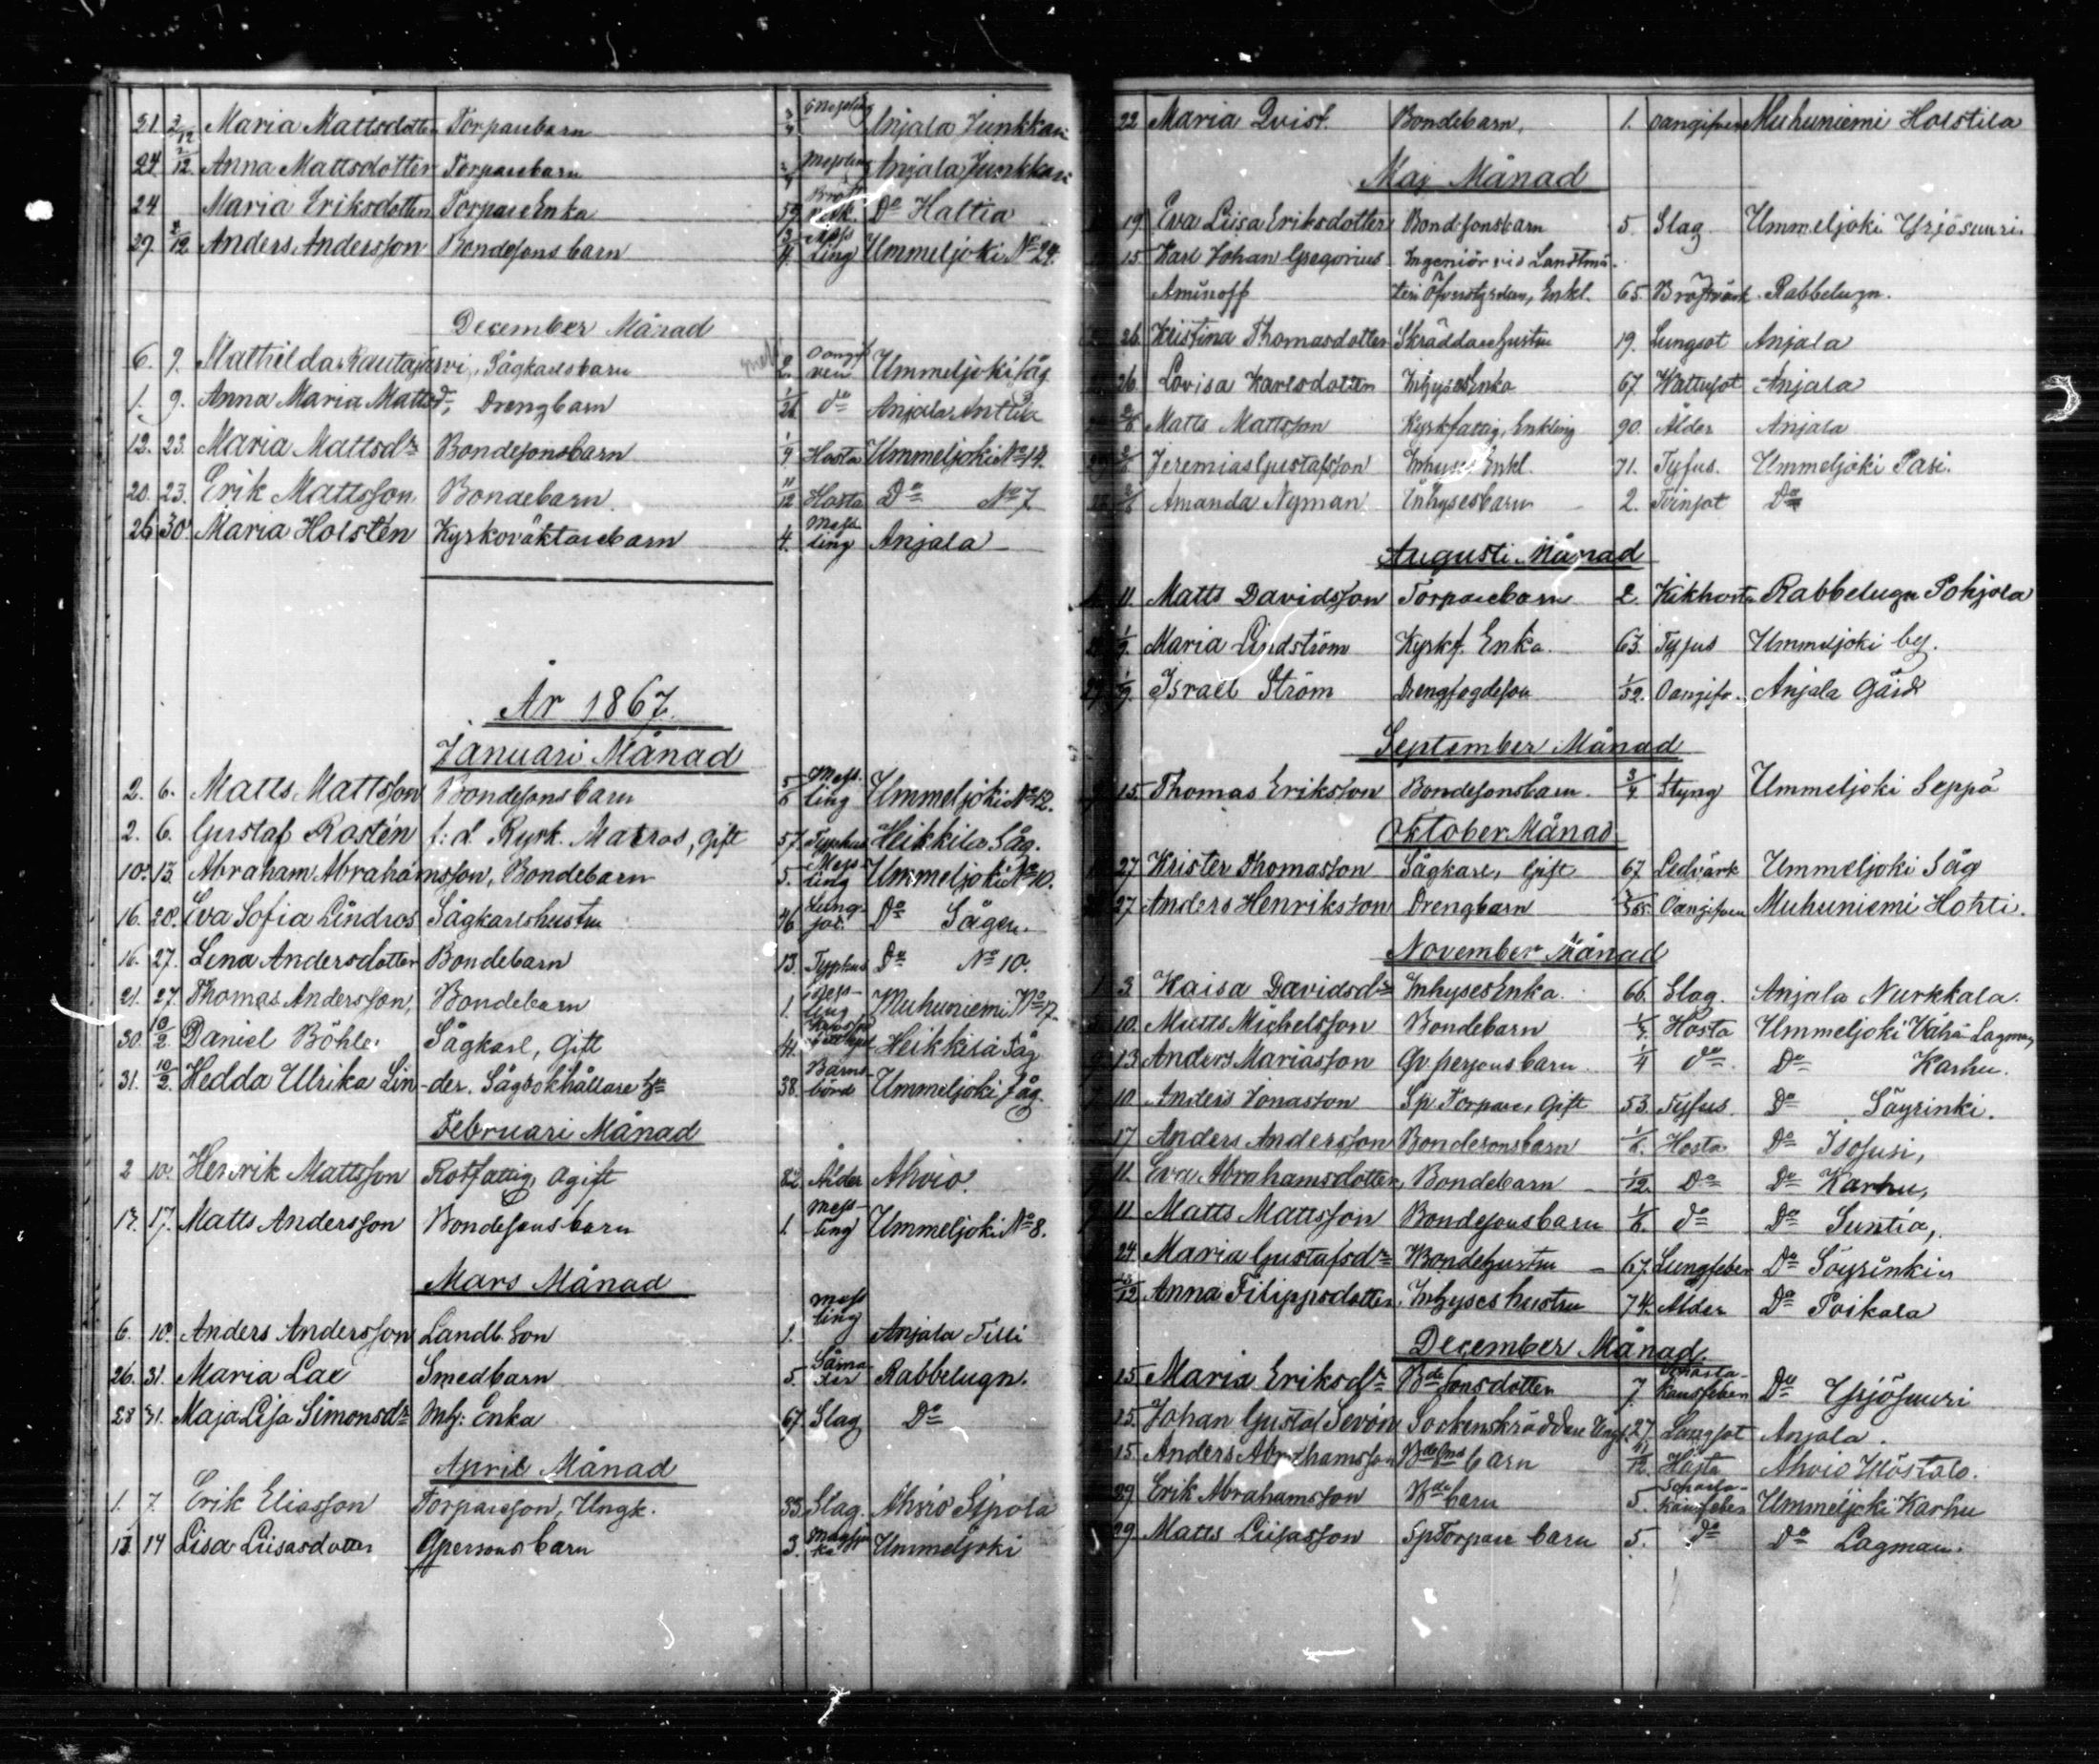 21 2/12 Maria Mattsdotter Torparebarn 3/4 Messling Anjala Junkkari
24 2/12 Anna Mattsdotter Torparebarn Messling Anjala Junkkari
24 Maria Eriksdotter Torpare Enka 59 Do Haltia
29 2/12 Anders Andersson Bondesons barn 3/4 Messling Ummeljoki No 24.
December Månad
6. 9. Mathilda Rautajärvi, Sågkarlsbarn 2. Oangifven Ummeljoki såg
1. 9. Anna Maria Mattsd, Drengbarn 1/26 do Anjala Anttila
12. 23. Maria Mattsdr Bondesonsbarn 1/4 Hosta Ummeljoki No 14.
20. 23. Erik Mattsson Bondebarn. 11/12 Hosta Do No 7
26 30 Maria Holstén Kyrkoväktarebarn 4. Messling Anjala
År 1867.
Januari Månad
2. 6. Matts Mattsson Bondesonsbarn 5/6 Messling Ummeljoki No 12.
2. 6. Gustaf Rostén f: d. Rysk. Matros, gift 57 Typhus Heikkilä Såg.
10. 13. Abraham Abrahamsson, Bondebarn 5. Messling Ummeljoki No 10.
16. 20. Eva Sofia Lindros Sågkarlshustru 46 Lungsot. Do Sågen.
16. 27. Lena Andersdotter Bondebarn 13. Typhus Do No 10.
21. 27. Thomas Andersson, Bondebarn 1. Messling Muhuniemi No 17.
30. 10/2. Daniel Böhle Sågkarl, Gift 41. Heikkilä Såg
31. 10/2. Hedda Ulrika Linder. Sågbokhållare hu 38. Barnsbörd Ummeljoki såg
Februari Månad
2 10. Henrik Mattsson Rotfattig, Ogift 82. Ålder Ahvio.
17. 17. Matts Andersson Bondesons barn 1. Messling Ummeljoki No 8.
Mars Månad
6. 10. Anders Andersson Landb. Son 1. Messling Anjala Tilli
26. 31. Maria Lae Smedbarn 5. Rabbelugn.
28 31. Maja Lisa Simonsdr Inh: Enka 67. Slag Do
April Månad
1. 7. Erik Eliasson Torpareson, Ungk. 33. Slag. Ahvio Sipola
11. 14 Lisa Liisasdotter Qpersons barn 3. Magsjuka Ummeljoki
22 Maria Qvist. Bondebarn, 1. Oangifven Muhuniemi Holstila
Maj Månad
19. Eva Liisa Eriksdotter Bondsonsbarn 5. Slag. Ummeljoki Yrjösuuri
15 Karl Johan Gregorius Ingeniör vid Landtmä-
Aminoff teri Öfverstyrelsen, Enkl. 65. Bröstvärk. Rabbelugn.
26. Kristina Thomasdotter Skräddarehustru 19. Lungsot Anjala
26. Lovisa Karlsdotter Inhyses Enka 67. Wattusot Anjala
2/6 Matts Mattsson Kyrkfattig, Enkling 90. Ålder Anjala
2/6 Jeremias Gustafsson Inhyses Enkl. 71. Tyfus. Ummeljoki Pasi.
2/6 Amanda Nyman Inhysesbarn 2. Tvinsot Do
Augusti Månad
11. Matts Davidsson Torparebarn 2. Kikhosta Rabbelugn Pohjola
1/9. Maria Lindström Kyrkf. Enka. 63. Tyfus Ummeljoki by.
1/9. Israel Ström Drengfogdeson 1/52. Oangifv. Anjala Gård
September Månad
15. Thomas Eriksson Bondesonsbarn. 3/4 Styng Ummeljoki Seppä
Oktober Månad
27 Krister Thomasson Sågkarl, Gift 67 Ledvärk Ummeljoki Såg
27 Anders Henriksson Drengbarn 3/365. Oangifven Muhuniemi Hohti.
November Månad
1 3 Kaisa Davidsdr Inhyses Enka. 66. Slag. Anjala Nurkkala.
10. Matts Michelsson Bondebarn 1/4. Hosta Ummeljoki Vähä-Lagman
13 Anders Mariasson Qv. persons barn. 1/4 do Do Karhu.
10 Anders Jonasson Sp. Torpare, Gift 53. Tyfus. Do Söyrinki.
17 Anders Andersson Bondesonsbarn 1/6. Hosta Do Isosusi,
11. Eva Abrahamsdotter, Bondebarn 1/12. Do Do Karhu,
11 Matts Mattsson Bondesonsbarn 1/6. do Do Suntia,
24. Maria Gustafsdr Bondehustru 67. Lungfeber Do Söyrinki
Anna Filippsdotter Inhyses hustru 74. Ålder Do Poikala
December Månad.
15 Maria Eriksdr Bde sonsdotter 7. Scharlakansfeber Do Yrjösuuri
15. Johan Gustaf Sevón Sockenskräddare Ungk. 27. Lungsot Anjala.
15. Anders Abrahamsson Bdesons barn 11/12. Hosta Ahvio
29. Erik Abrahamsson Bde barn 5. Scharlakansfeber Ummeljoki Karhu
29 Matts Liisasson Sp Torpare barn 5. do Do Lagman.